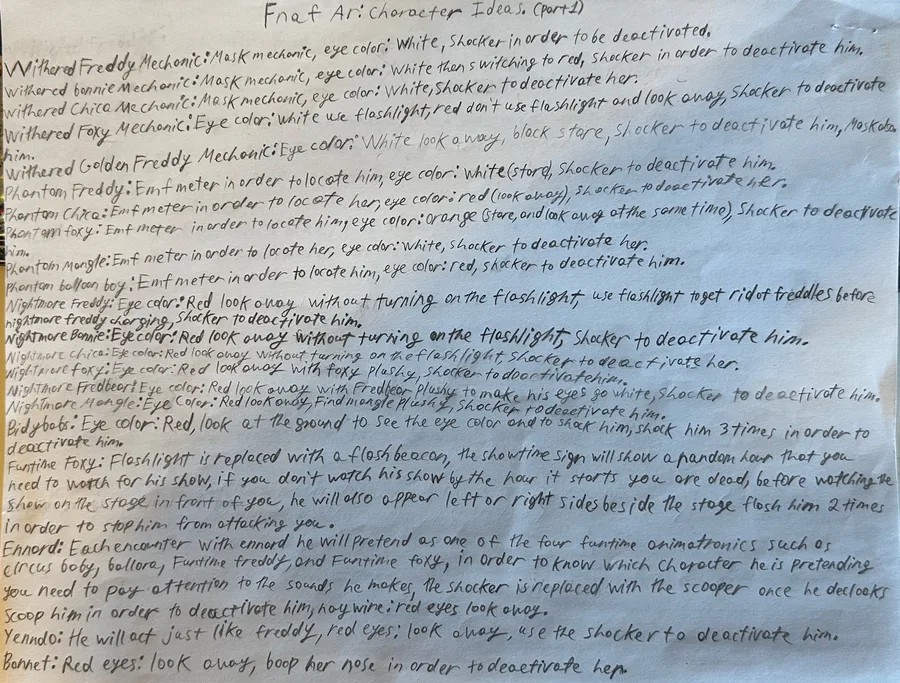 Fnaf Ar: Character Ideas. (part 1)
Withered Freddy Mechanic: Mask mechanic, eye color: White, Shocker in order to be deactivated.
Withered bonnie Mechanic: Mask mechanic, eye color: White then switching to red, Shocker in order to deactivate him.
withered Chica Mechanic: Mask mechanic, eye color: White, Shocker to deactivate her.
Withered Foxy Mechanic: Eye color: white use flashlight, red don't use flashlight and look away, Shocker to deactivate
him.
Withered Golden Freddy Mechanic: Eye color: White look away, black stare, shocker to deactivate him, Mask
Phantom Freddy: Emf meter in order to locate him, eye color: white (stare), Shocker to deactivate him.
Phantom Chica: Emf meter in order to locate her, eye color: red (look away), Shocker to deactivate her.
Phantom foxy: Emf meter in order to locate him, eye color: orange (stare, and look away at the same time), Shocker to deactivate
him.
Phantom Mangle: Emf meter in order to locate her, eye color: White, shocker to deactivate her.
Phantom balloon boy: Emf meter in order to locate him, eye color: red, shocker to deactivate him.
Nightmare Freddy: Eye color: Red look away without turning on the flashlight, use flashlight to get rid of freddles before
nightmare freddy charging, Shocker to deactivate him.
Nightmare Bonnie: Eye color: Red look away without turning on the flashlight, Shocker to deactivate him.
Nightmare Chica: Eye color: Red look away without turning on the flashlight, Shocker to deactivate her.
Nightmare foxy: Eye color: Red look away with foxy plushy, shocker to deactivate him.
Nightmare Fredbear: Eye color: Red look away with Fredbear plushy to make his eyes go white, Shocker to deactivate him.
Nightmare Mangle: Eye Color: Red look away, Find mangle plushy, Shocker to deactivate him.
Bidybabs: Eye color: Red, look at the ground to see the eye color and to shock him, shock him 3 times in order to
deactivate him.
Funtime Foxy: Flashlight is replaced with a flashbeacon, the showtime sign will show a random hour that you
need to watch for his show, if you don't watch his show by the hour it starts you are dead, before watching the
show on the stage in front of you, he will also appear left or right sides beside the stage flash him 2 times
in order to stop him from attacking you.
Ennard: Each encounter with ennard he will pretend as one of the four funtime animatronics such as
circus baby, ballora, Funtime freddy, and Funtime foxy, in order to know which character he is pretending
you need to pay attention to the sounds he makes, the shocker is replaced with the scooper once he decloaks
scoop him in order to deactivate him, haywire: red eyes look away.
Yenndo: He will act just like freddy, red eyes: look away, use the shocker to deactivate him.
Bonnet: Red eyes: look away, boop her nose in order to deactivate her.